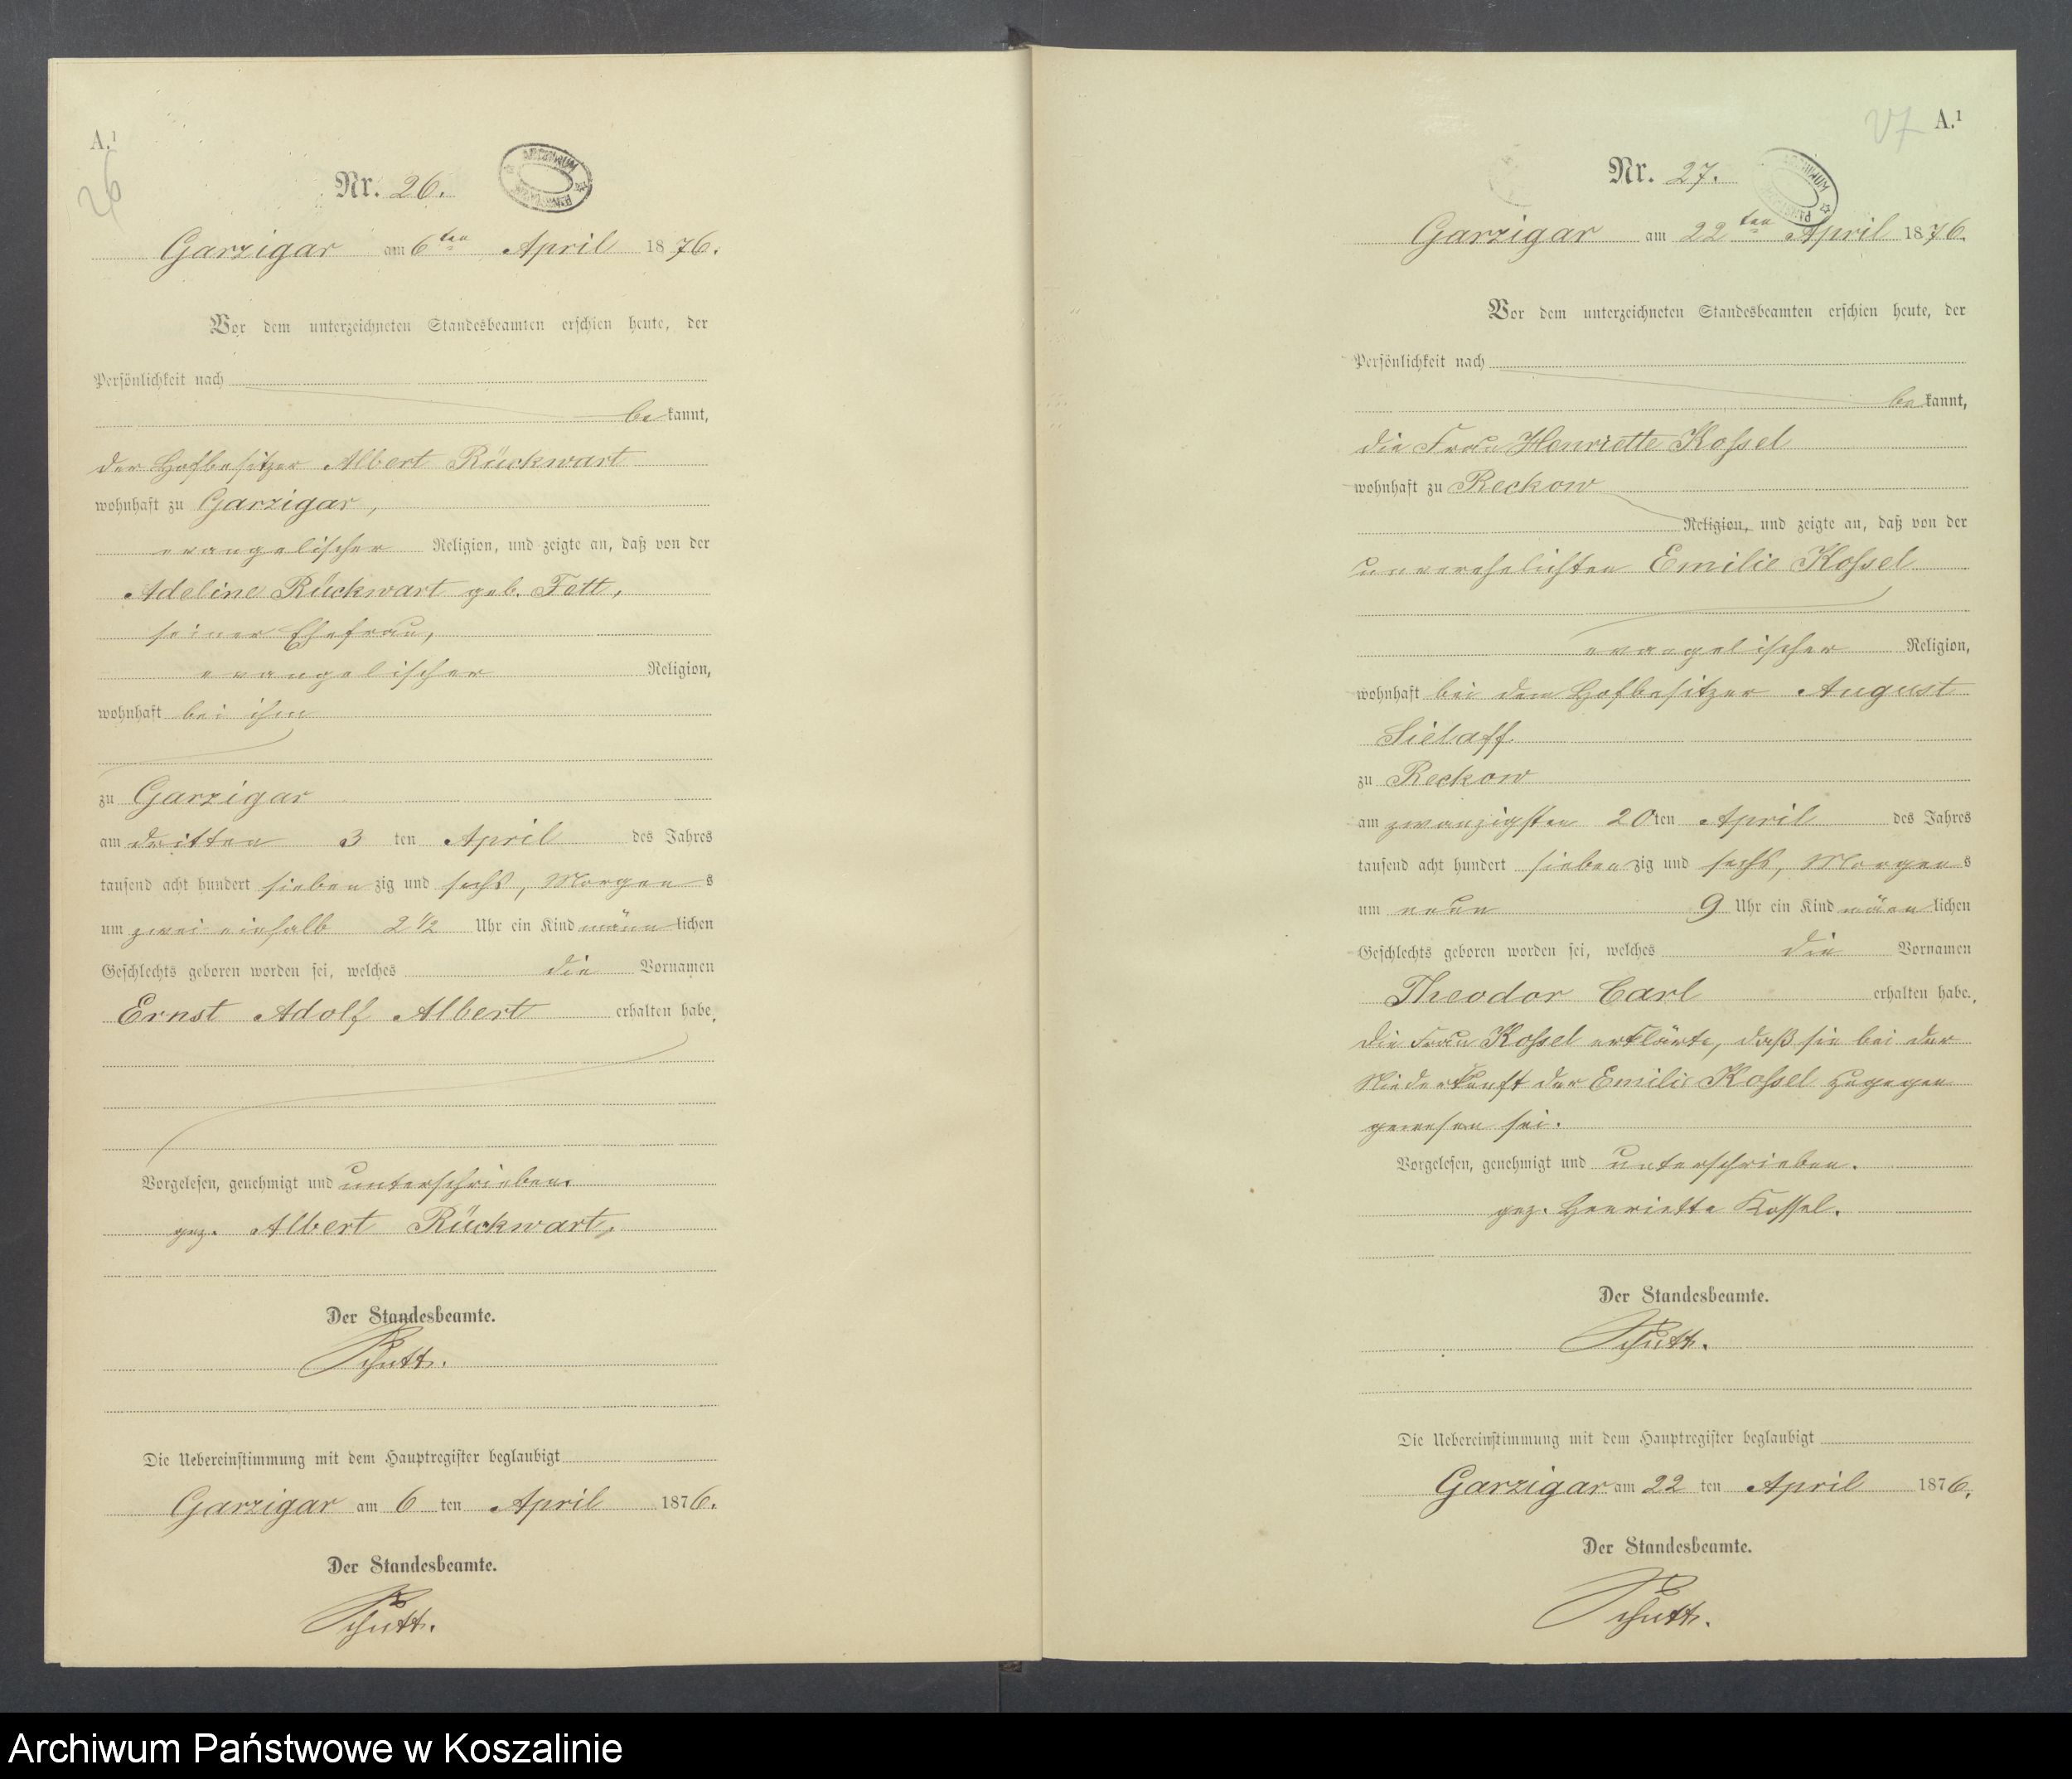 A.¹
26
Nr. 26.
ARCHIWUM
Garzigar am 6ten April 1876.
Vor dem unterzeichneten Standesbeamten erschien heute, der
Persönlichkeit nach
bekannt,
der Hofbesitzer Albert Rückwart
wohnhaft zu Garzigar,
evangelischer Religion, und zeigte an, daß von der
Adeline Rückwart geb. Fett,
seiner Ehefrau,
evangelischer Religion,
wohnhaft bei ihm
zu Garzigar
am dritten 3 ten April des Jahres
tausend acht hundert siebenzig und sechs, Morgens
um zwei einhalb 2 1/2 Uhr ein Kind männlichen
Geschlechts geboren worden sei, welches die Vornamen
Ernst Adolf Albert erhalten habe.
Vorgelesen, genehmigt und unterschrieben.
gez. Albert Rückwart,
Der Standesbeamte.
Die Uebereinstimmung mit dem Hauptregister beglaubigt
Garzigar am 6 ten April 1876.
Der Standesbeamte.
27
A.¹
Nr. 27.
ARCHIWUM
Garzigar am 22ten April 1876.
Vor dem unterzeichneten Standesbeamten erschien heute, der
Persönlichkeit nach
bekannt,
die Frau Henriette Koßel
wohnhaft zu Reckow
Religion, und zeigte an, daß von der
unverehelichten Emilie Koßel
evangelischer Religion,
wohnhaft bei dem Hofbesitzer August
Sielaff
zu Reckow
am zwanzigsten 20ten April des Jahres
tausend acht hundert siebenzig und sechs, Morgens
um neun 9 Uhr ein Kind männlichen
Geschlechts geboren worden sei, welches die Vornamen
Theodor Carl erhalten habe.,
die Frau Koßel erklärte, daß sie bei der
Niederkunft der Emilie Koßel zugegen
gewesen sei.
Vorgelesen, genehmigt und unterschrieben.
gez. Henriette Kossel.
Der Standesbeamte.
Die Uebereinstimmung mit dem Hauptregister beglaubigt
Garzigar am 22 ten April 1876.
Der Standesbeamte.
Archiwum Państwowe w Koszalinie